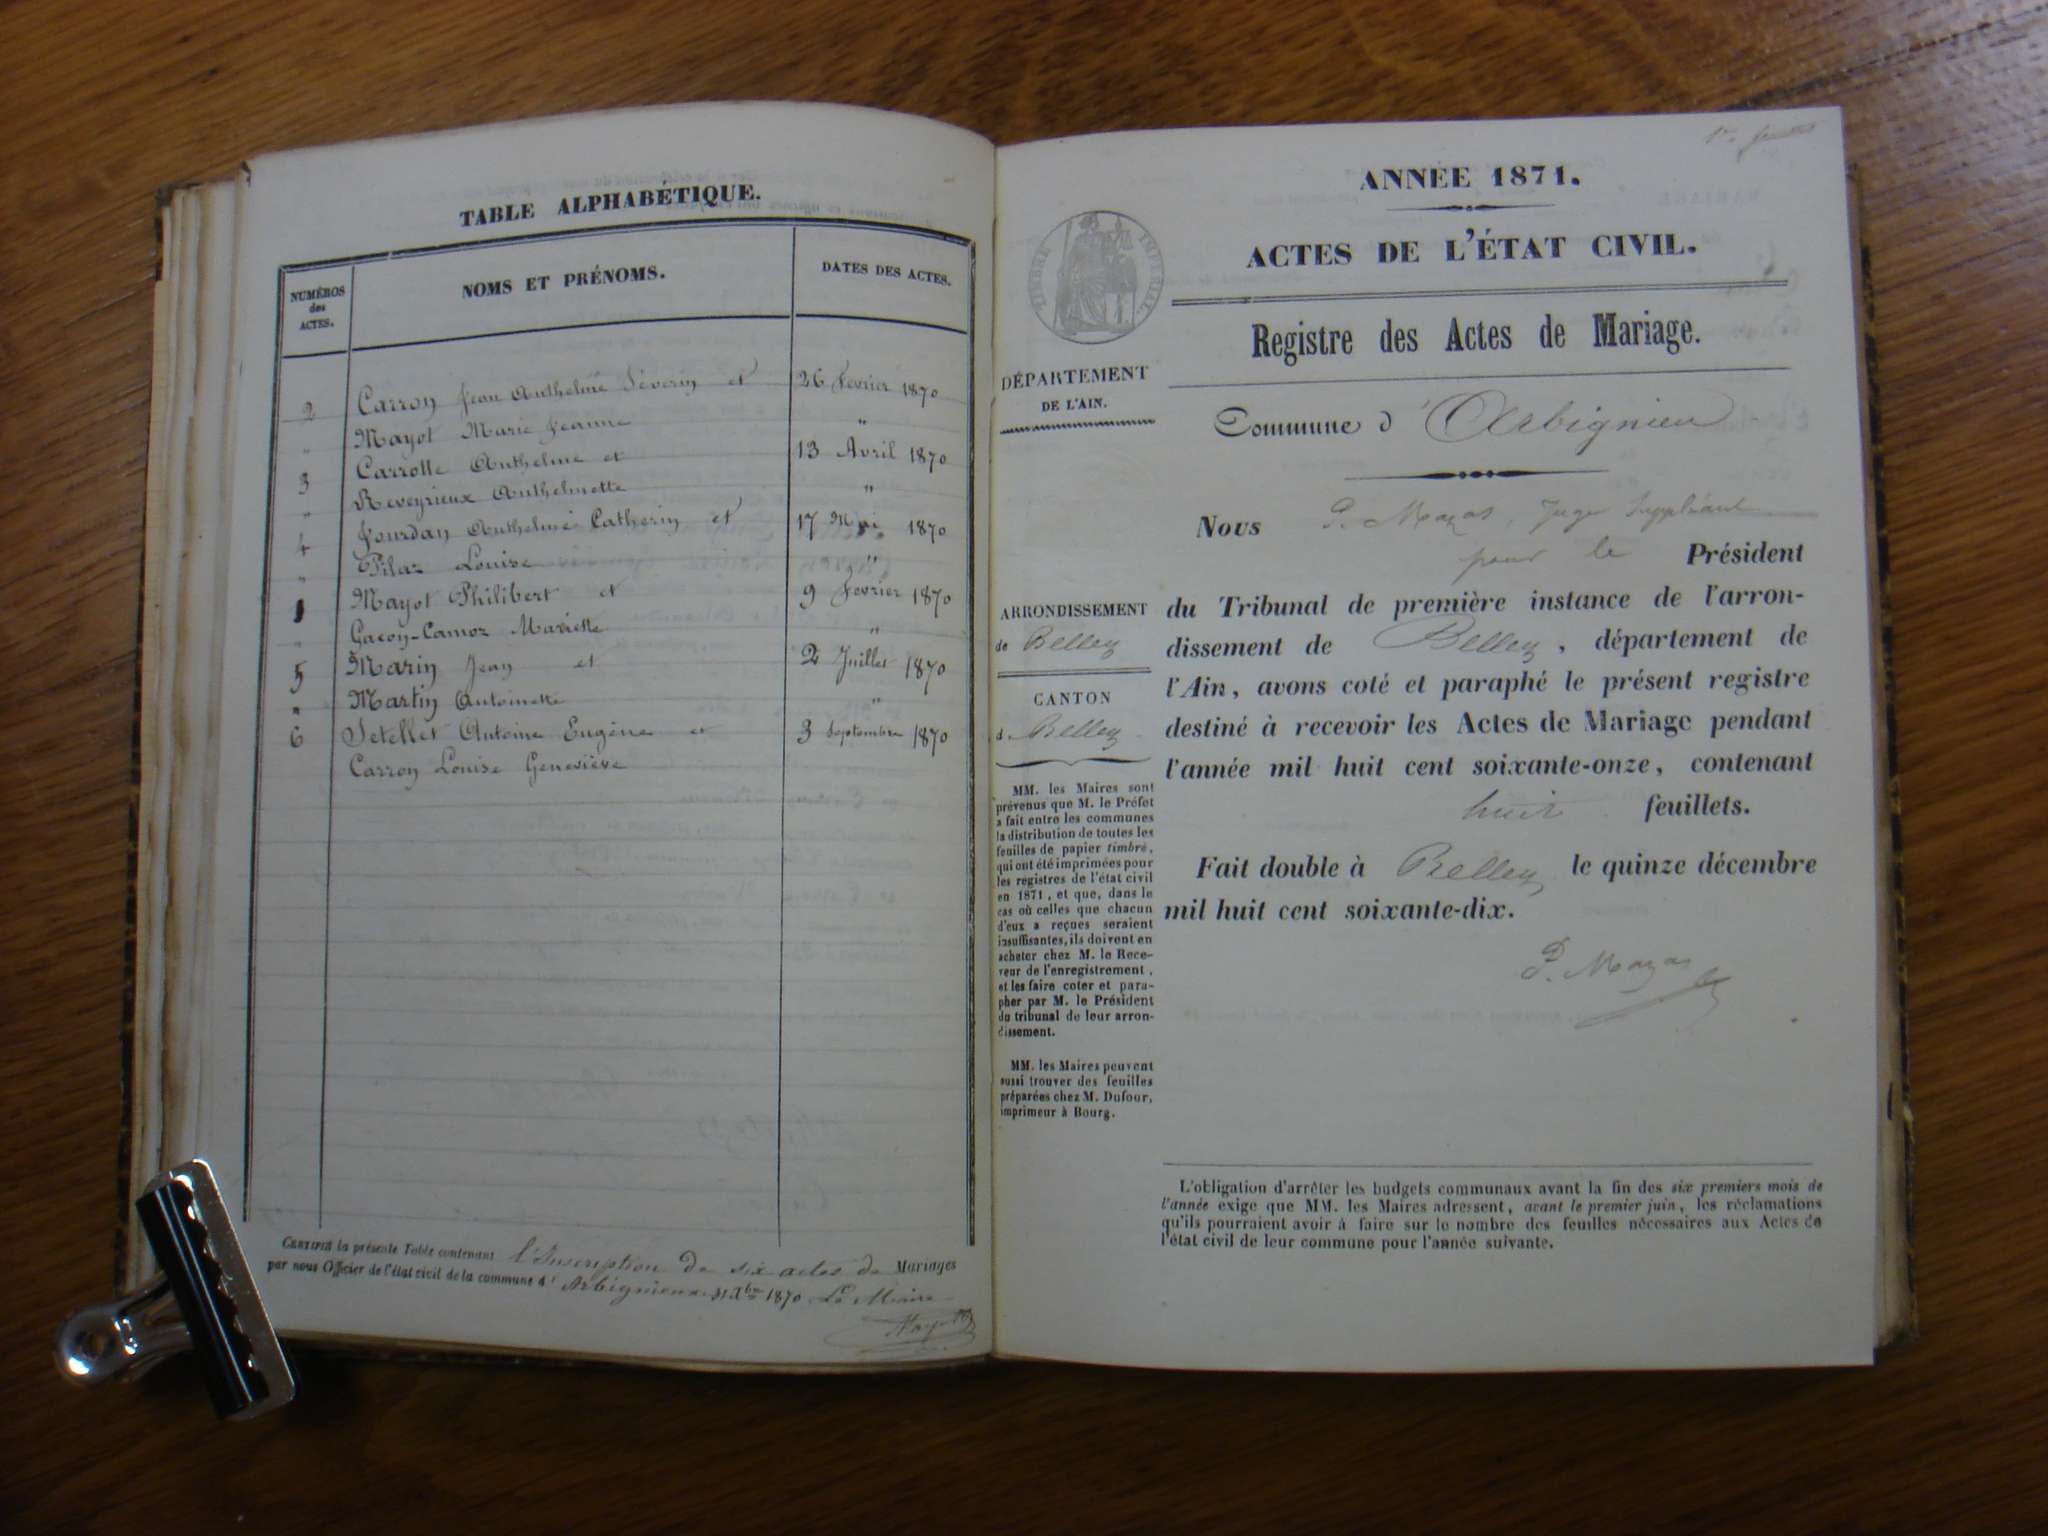 TABLE ALPHABÉTIQUE.
NUMÉROS des ACTES.
NOMS ET PRÉNOMS.
DATES DES ACTES.
2 Carron Jean Anthelme Séverin et 26 Fevrier 1870
" Mayot Marie Jeanne "
3 Carrotte Anthelme et 13 Avril 1870
" Reveyrieux Anthelmette "
4 Jourdan Anthelme Catherin et 17 Mai 1870
" Pilaz Louise "
1 Mayot Philibert et 9 Fevrier 1870
" Gacon-Camoz Mariette "
5 Marin Jean et 2 Juillet 1870
" Martin Antoinette "
6 Setellet Antoine Eugène et 3 Septembre 1870
Carron Louise Geneviève
CERTIFIÉ la présente Table contenant l'Inscription de six actes de Mariages
par nous Officier de l'état civil de la commune d' Arbignieux 31 Xbre 1870 Le Maire
1er feuillet
ANNÉE 1871.
ACTES DE L'ÉTAT CIVIL.
TIMBRE IMPÉRIAL.
Registre des Actes de Mariage.
DÉPARTEMENT
DE L'AIN.
Commune d'Arbignieu
ARRONDISSEMENT
de Belley
CANTON
d. Belley
MM. les Maires sont
prévenus que M. le Préfet
a fait entre les communes
la distribution de toutes les
feuilles de papier timbré,
qui ont été imprimées pour
les registres de l'état civil
en 1871, et que, dans le
cas où celles que chacun
d'eux a reçues seraient
insuffisantes, ils doivent en
acheter chez M. le Rece-
veur de l'enregistrement,
et les faire coter et para-
pher par M. le Président
du tribunal de leur arron-
dissement.
MM. les Maires peuvent
aussi trouver des feuilles
préparées chez M. Dufour,
imprimeur à Bourg.
Nous P. Mazas, Juge Suppléant
pour le Président
du Tribunal de première instance de l'arron-
dissement de Belley, département de
l'Ain, avons coté et paraphé le présent registre
destiné à recevoir les Actes de Mariage pendant
l'année mil huit cent soixante-onze, contenant
huit feuillets.
Fait double à Belley le quinze décembre
mil huit cent soixante-dix.
P. Mazas
L'obligation d'arrêter les budgets communaux avant la fin des six premiers mois de
l'année exige que MM. les Maires adressent, avant le premier juin, les réclamations
qu'ils pourraient avoir à faire sur le nombre des feuilles nécessaires aux Actes de
l'état civil de leur commune pour l'année suivante.